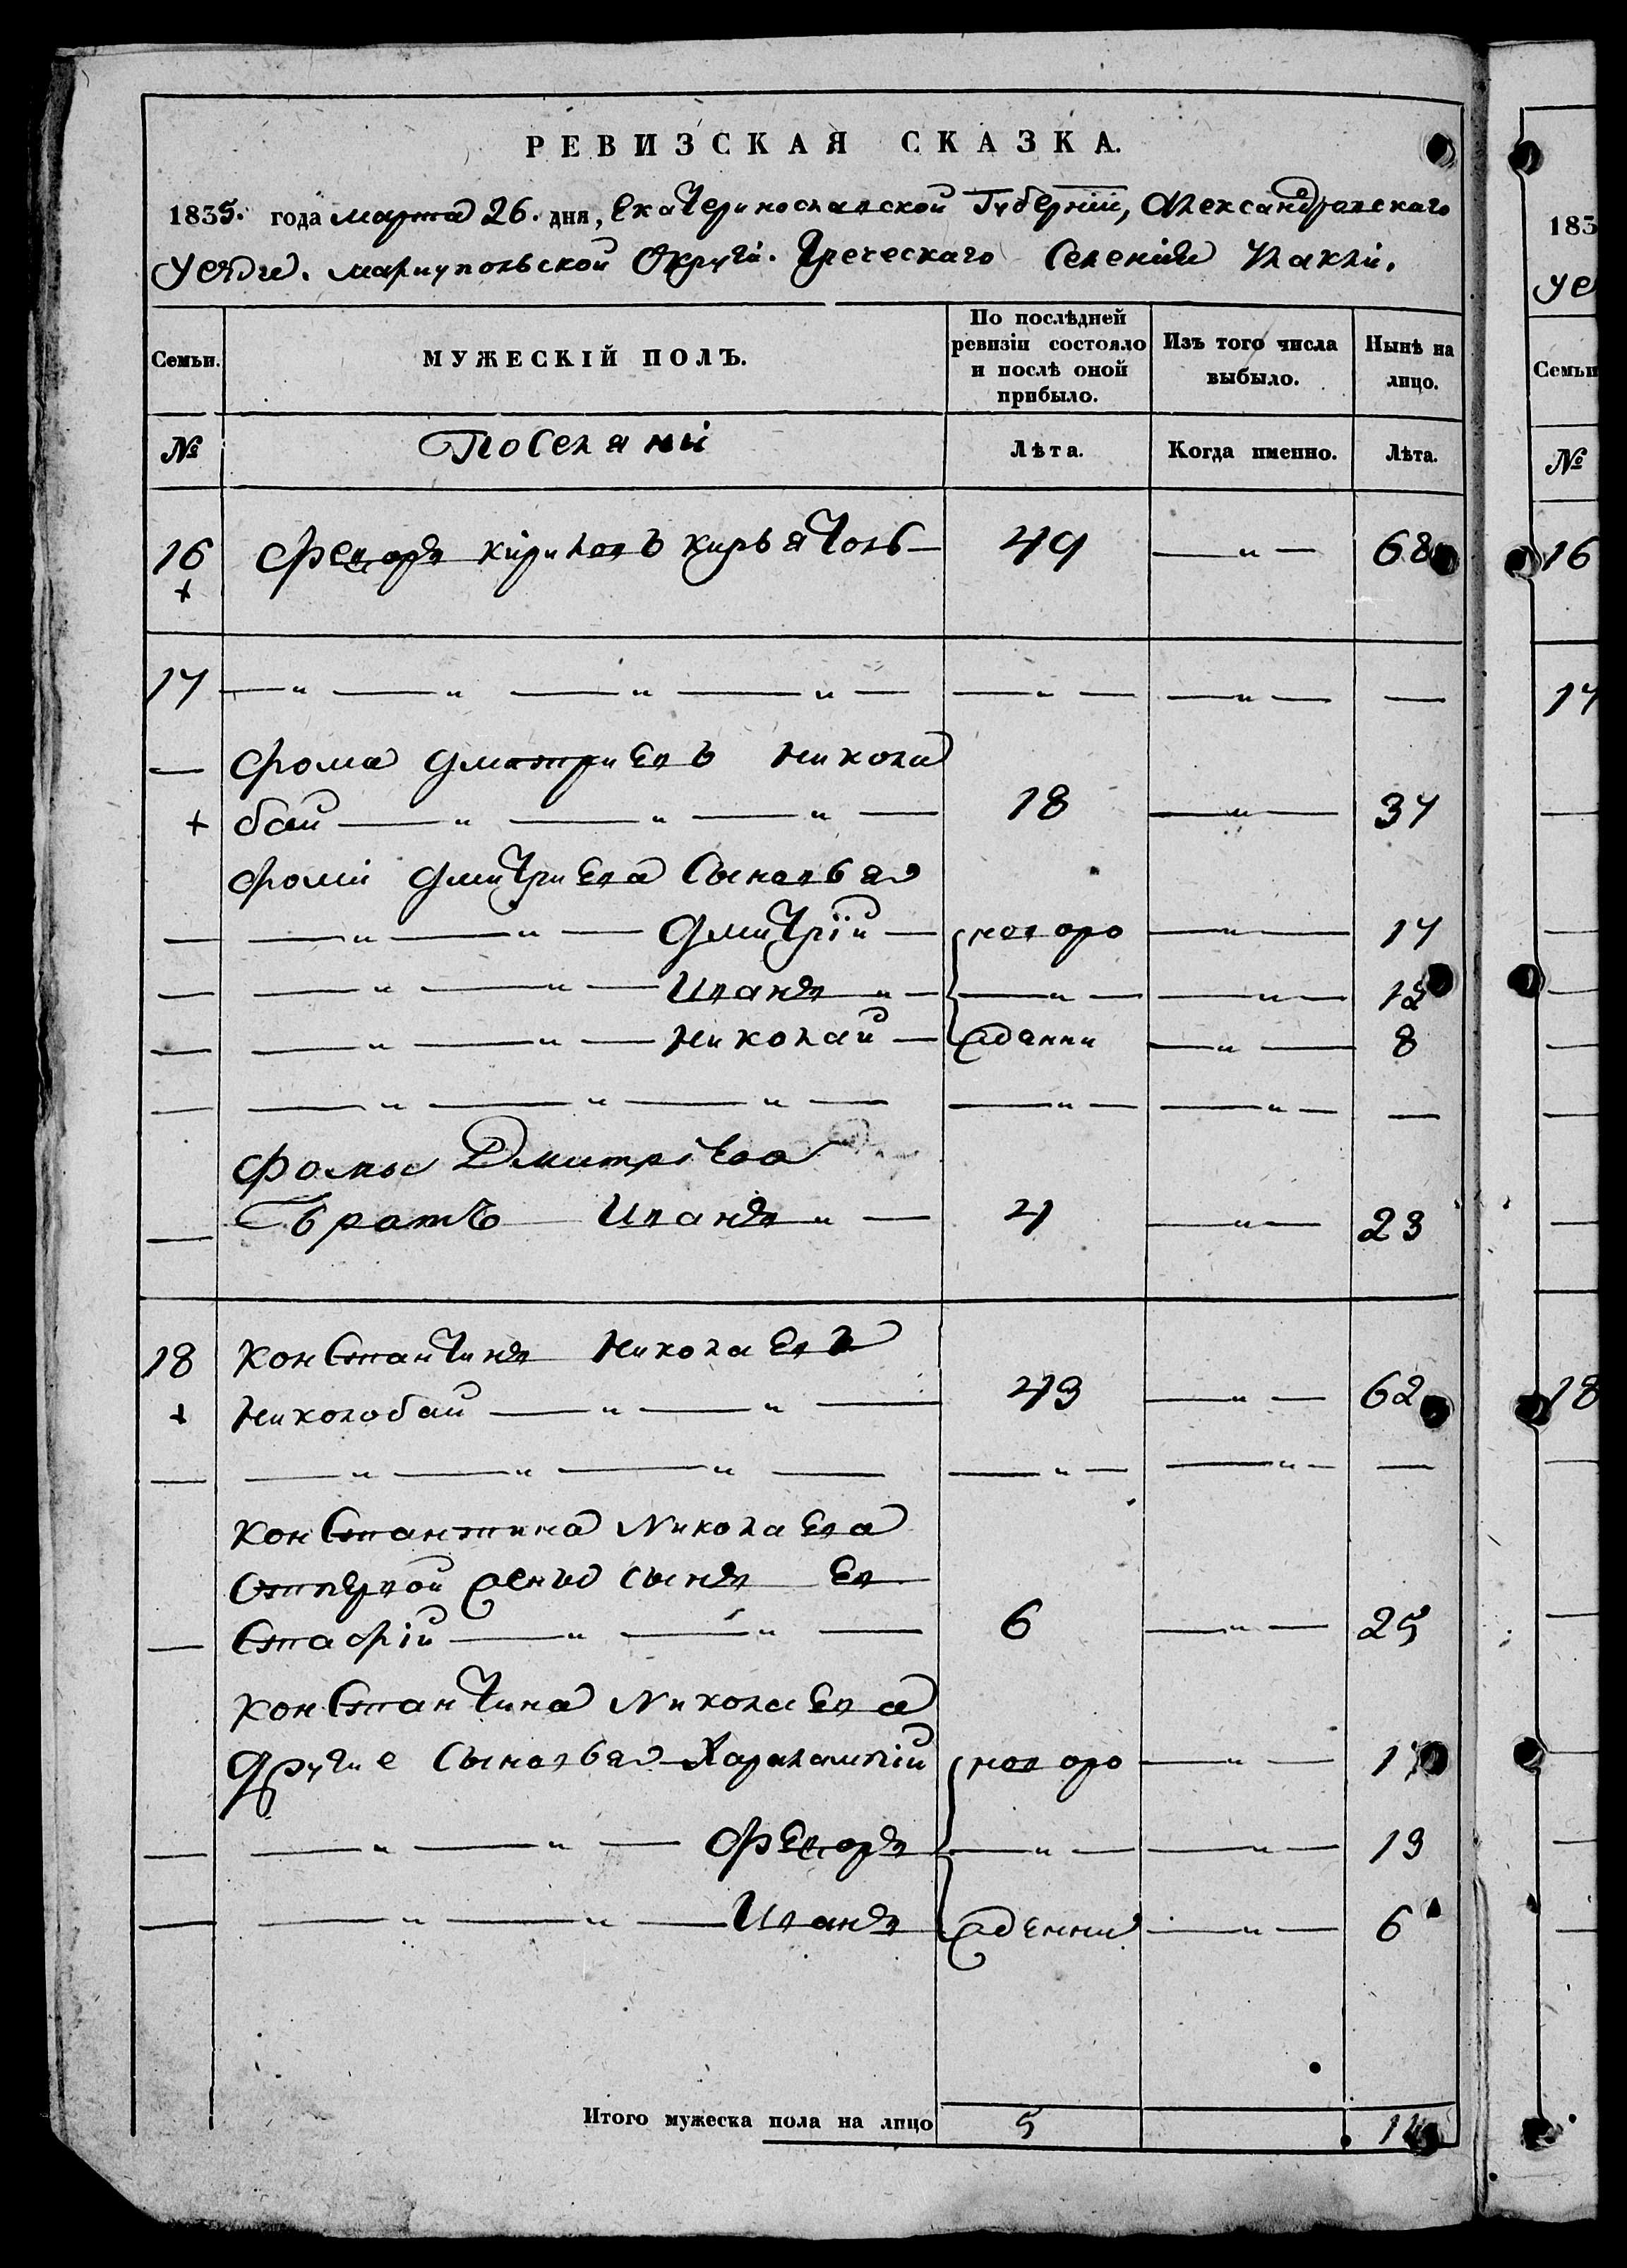 РЕВИЗСКАЯ СКАЗКА.
1835. года марта 26. дня, Екатеринославской Губерніи, Александровскаго
Уезда. Мариупольской Округи. Греческаго Селенія
Семьи. МУЖЕСКІЙ ПОЛЪ. По послѣдней ревизіи состояло и послѣ оной прибыло. Изъ того числа выбыло. Нынѣ на лицо.
№ Поселяни Лѣта. Когда именно. Лѣта.
16 Федоръ Кириловъ 49 — " — 68
+
17 — " — " — " — " — — " — — " — —
— Фома Дматриевъ Никола
+ бай — " — " — " — 18 — " — 37
Фоми Дмитриева Сыновья
— — " — " — Дмитрій — новоро — " — 17
— — " — " — Иванъ " — — " — — " — 12
— — " — " — Николай — жденни — " — 8
— — " — " — " — — " — — " — —
Фомы Дмитріева
— Братъ Иванъ " — 4 — " — 23
18 Константинъ Николаевъ
+ Николобай — " — " — 43 — " — 62
— — " — " — " — — " — — " — —
Константина Николаева
Отпервой жены сынъ Ев
— стафій — " — " — 6 — " — 25
Константина Николаева
другие Сыновья Харалампій новоро — " — 17
— — " — " — Федоръ — " — — " — 13
— — " — " — Иванъ жденни — " — 6
Итого мужеска пола на лицо 5
183
Уе
Семьи
№
16
17
18